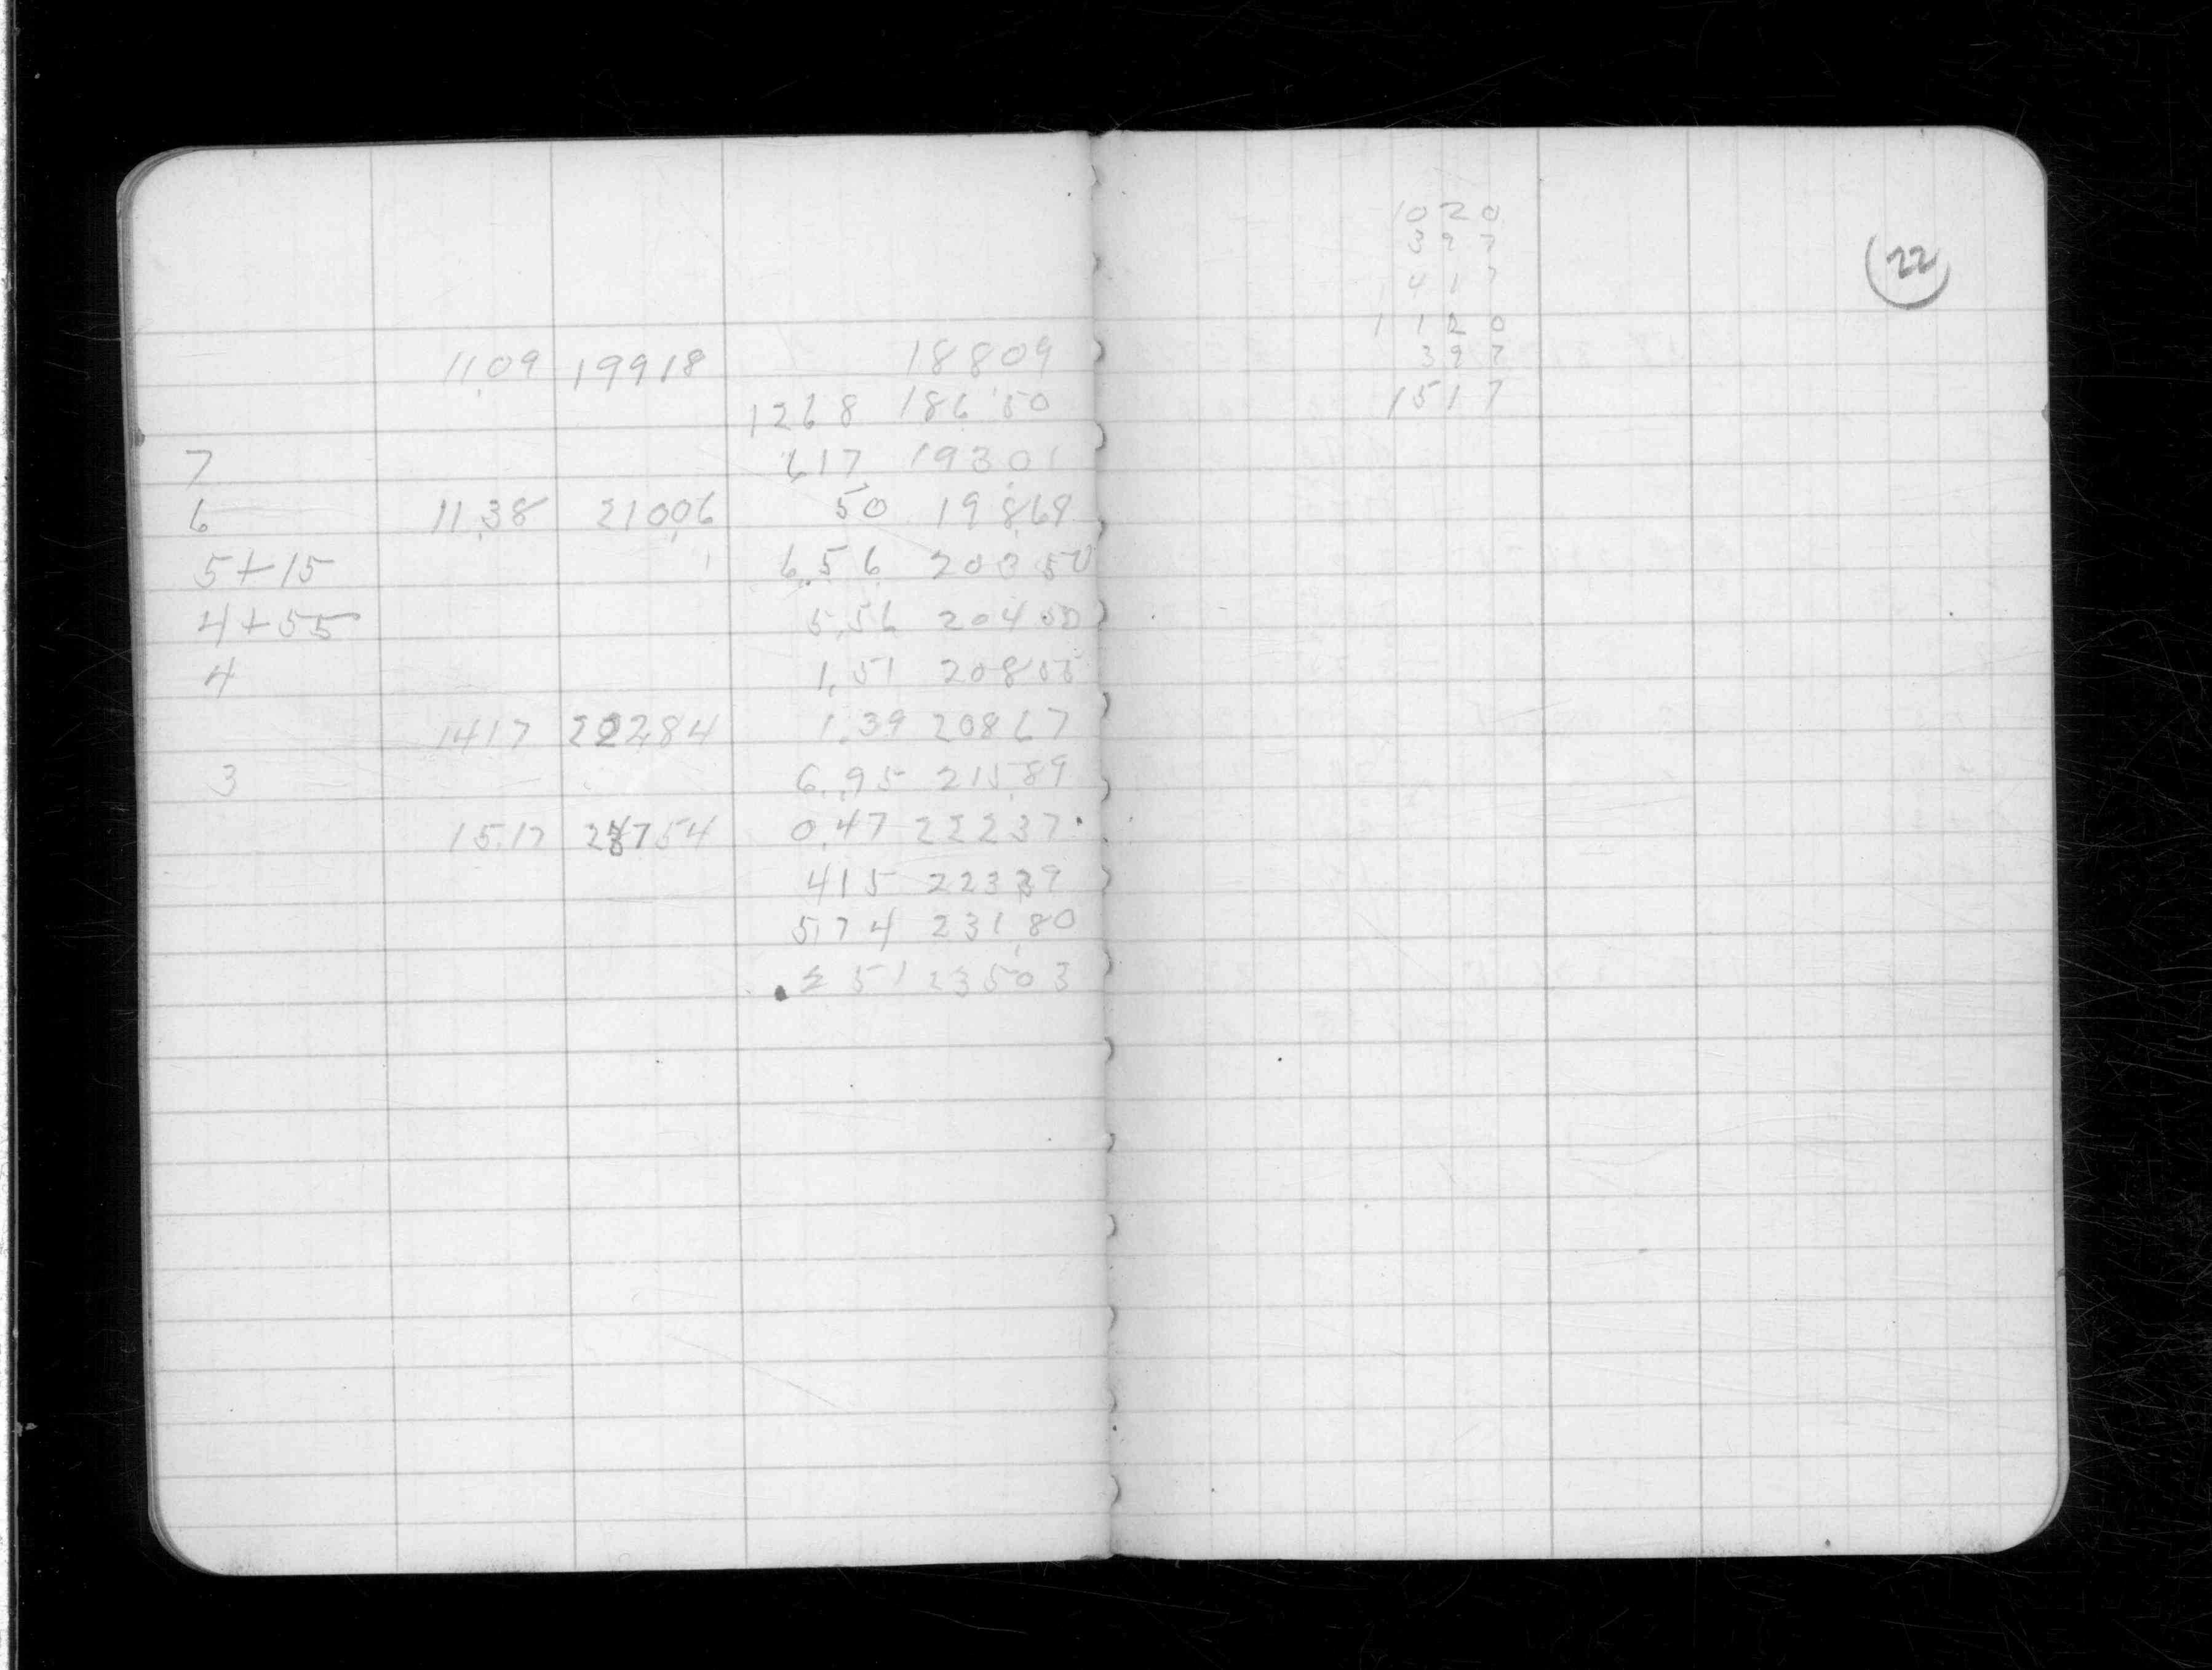 11.09 19918 18809
1268 186.50
7 617 193.01
6 11.38 210.06 50 19869
5+15 6.56 20350
4+55 5.56 20450
4 1.51 20855
1417 222.84 1.39 20867
3 6.95 21589
15.17 23754 0.47 22237
415 22339
574 23180
251 23503
1020
397
1417
1120
397
1517
22